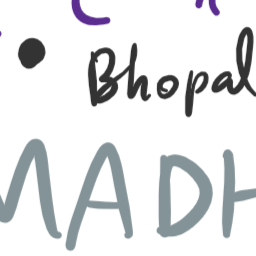 Bhopal
MADH